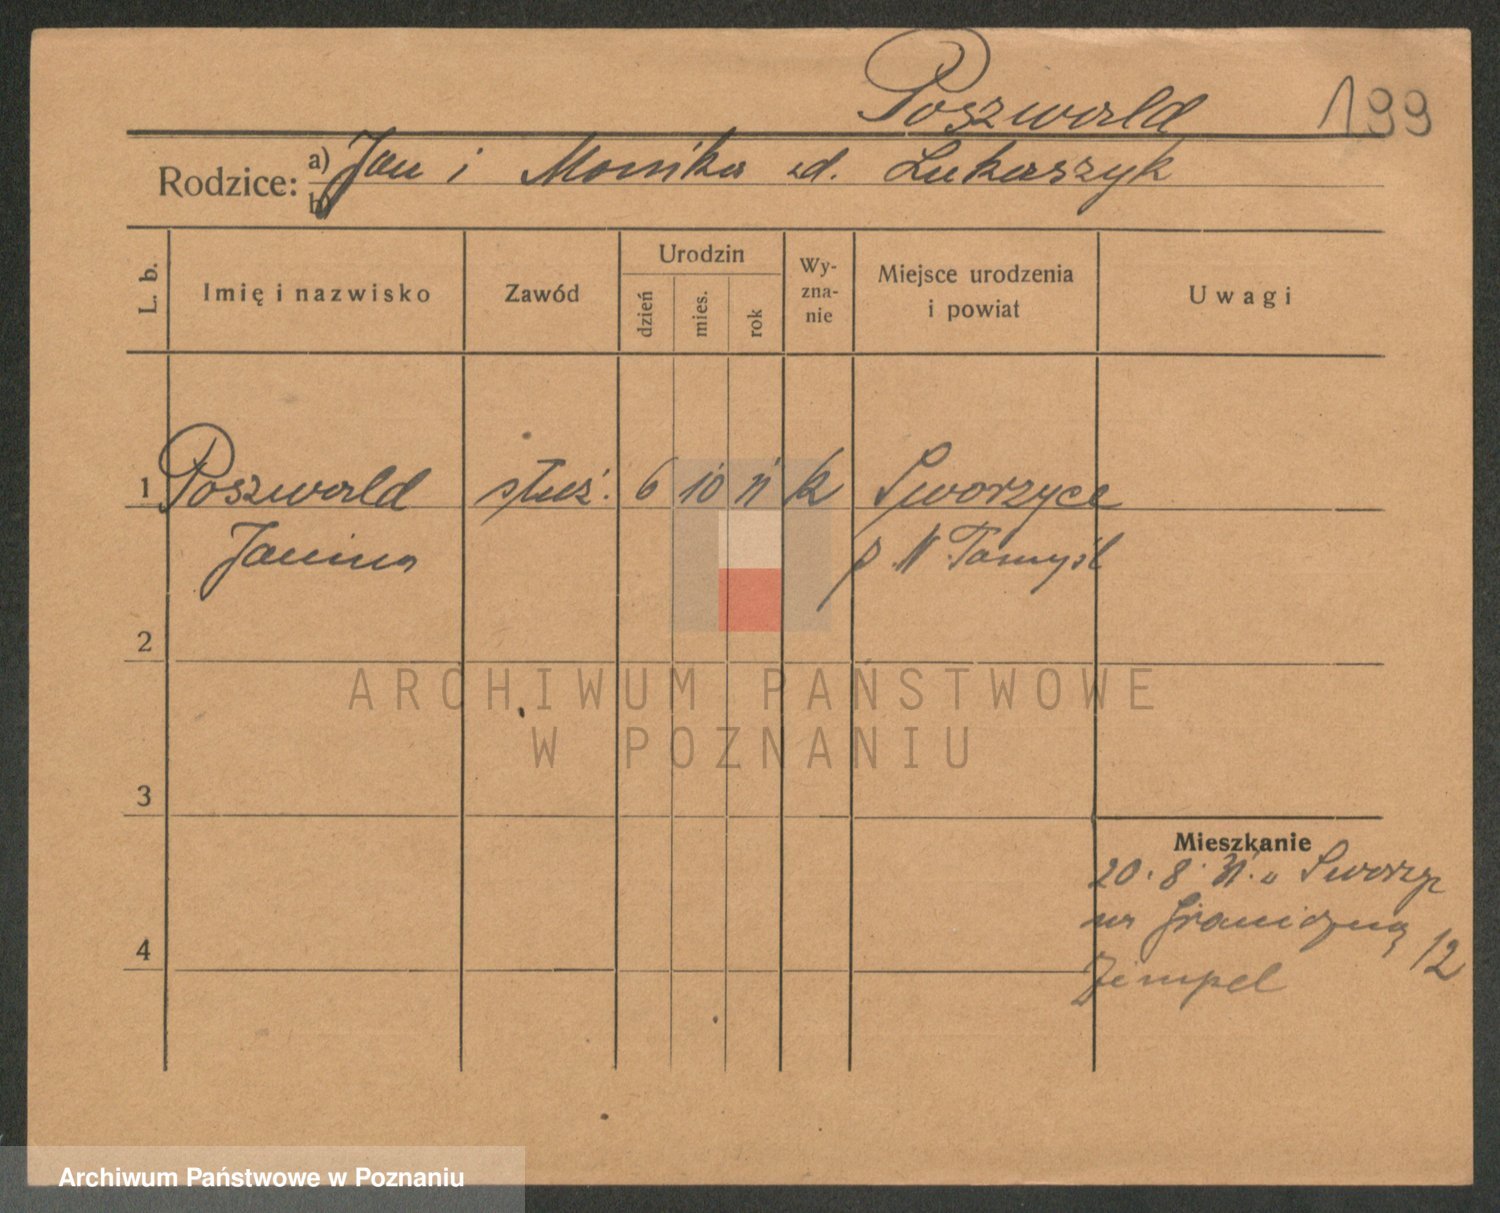 Poszwald 199
Rodzice: a) Jan i Monika zd. Lukaszyk
b)
L. b. Imię i nazwisko Zawód Urodzin dzień mies. rok Wy-zna-nie Miejsce urodzenia i powiat Uwagi
1 Poszwald służ. 6 10 11 k Sworzyce
Janina p N. Tomyśl
2
ARCHIWUM PAŃSTWOWE
W POZNANIU
3
Mieszkanie
20. 8. 31. z Sworzyc
na Graniczną 12
4
Zempel
Archiwum Państwowe w Poznaniu